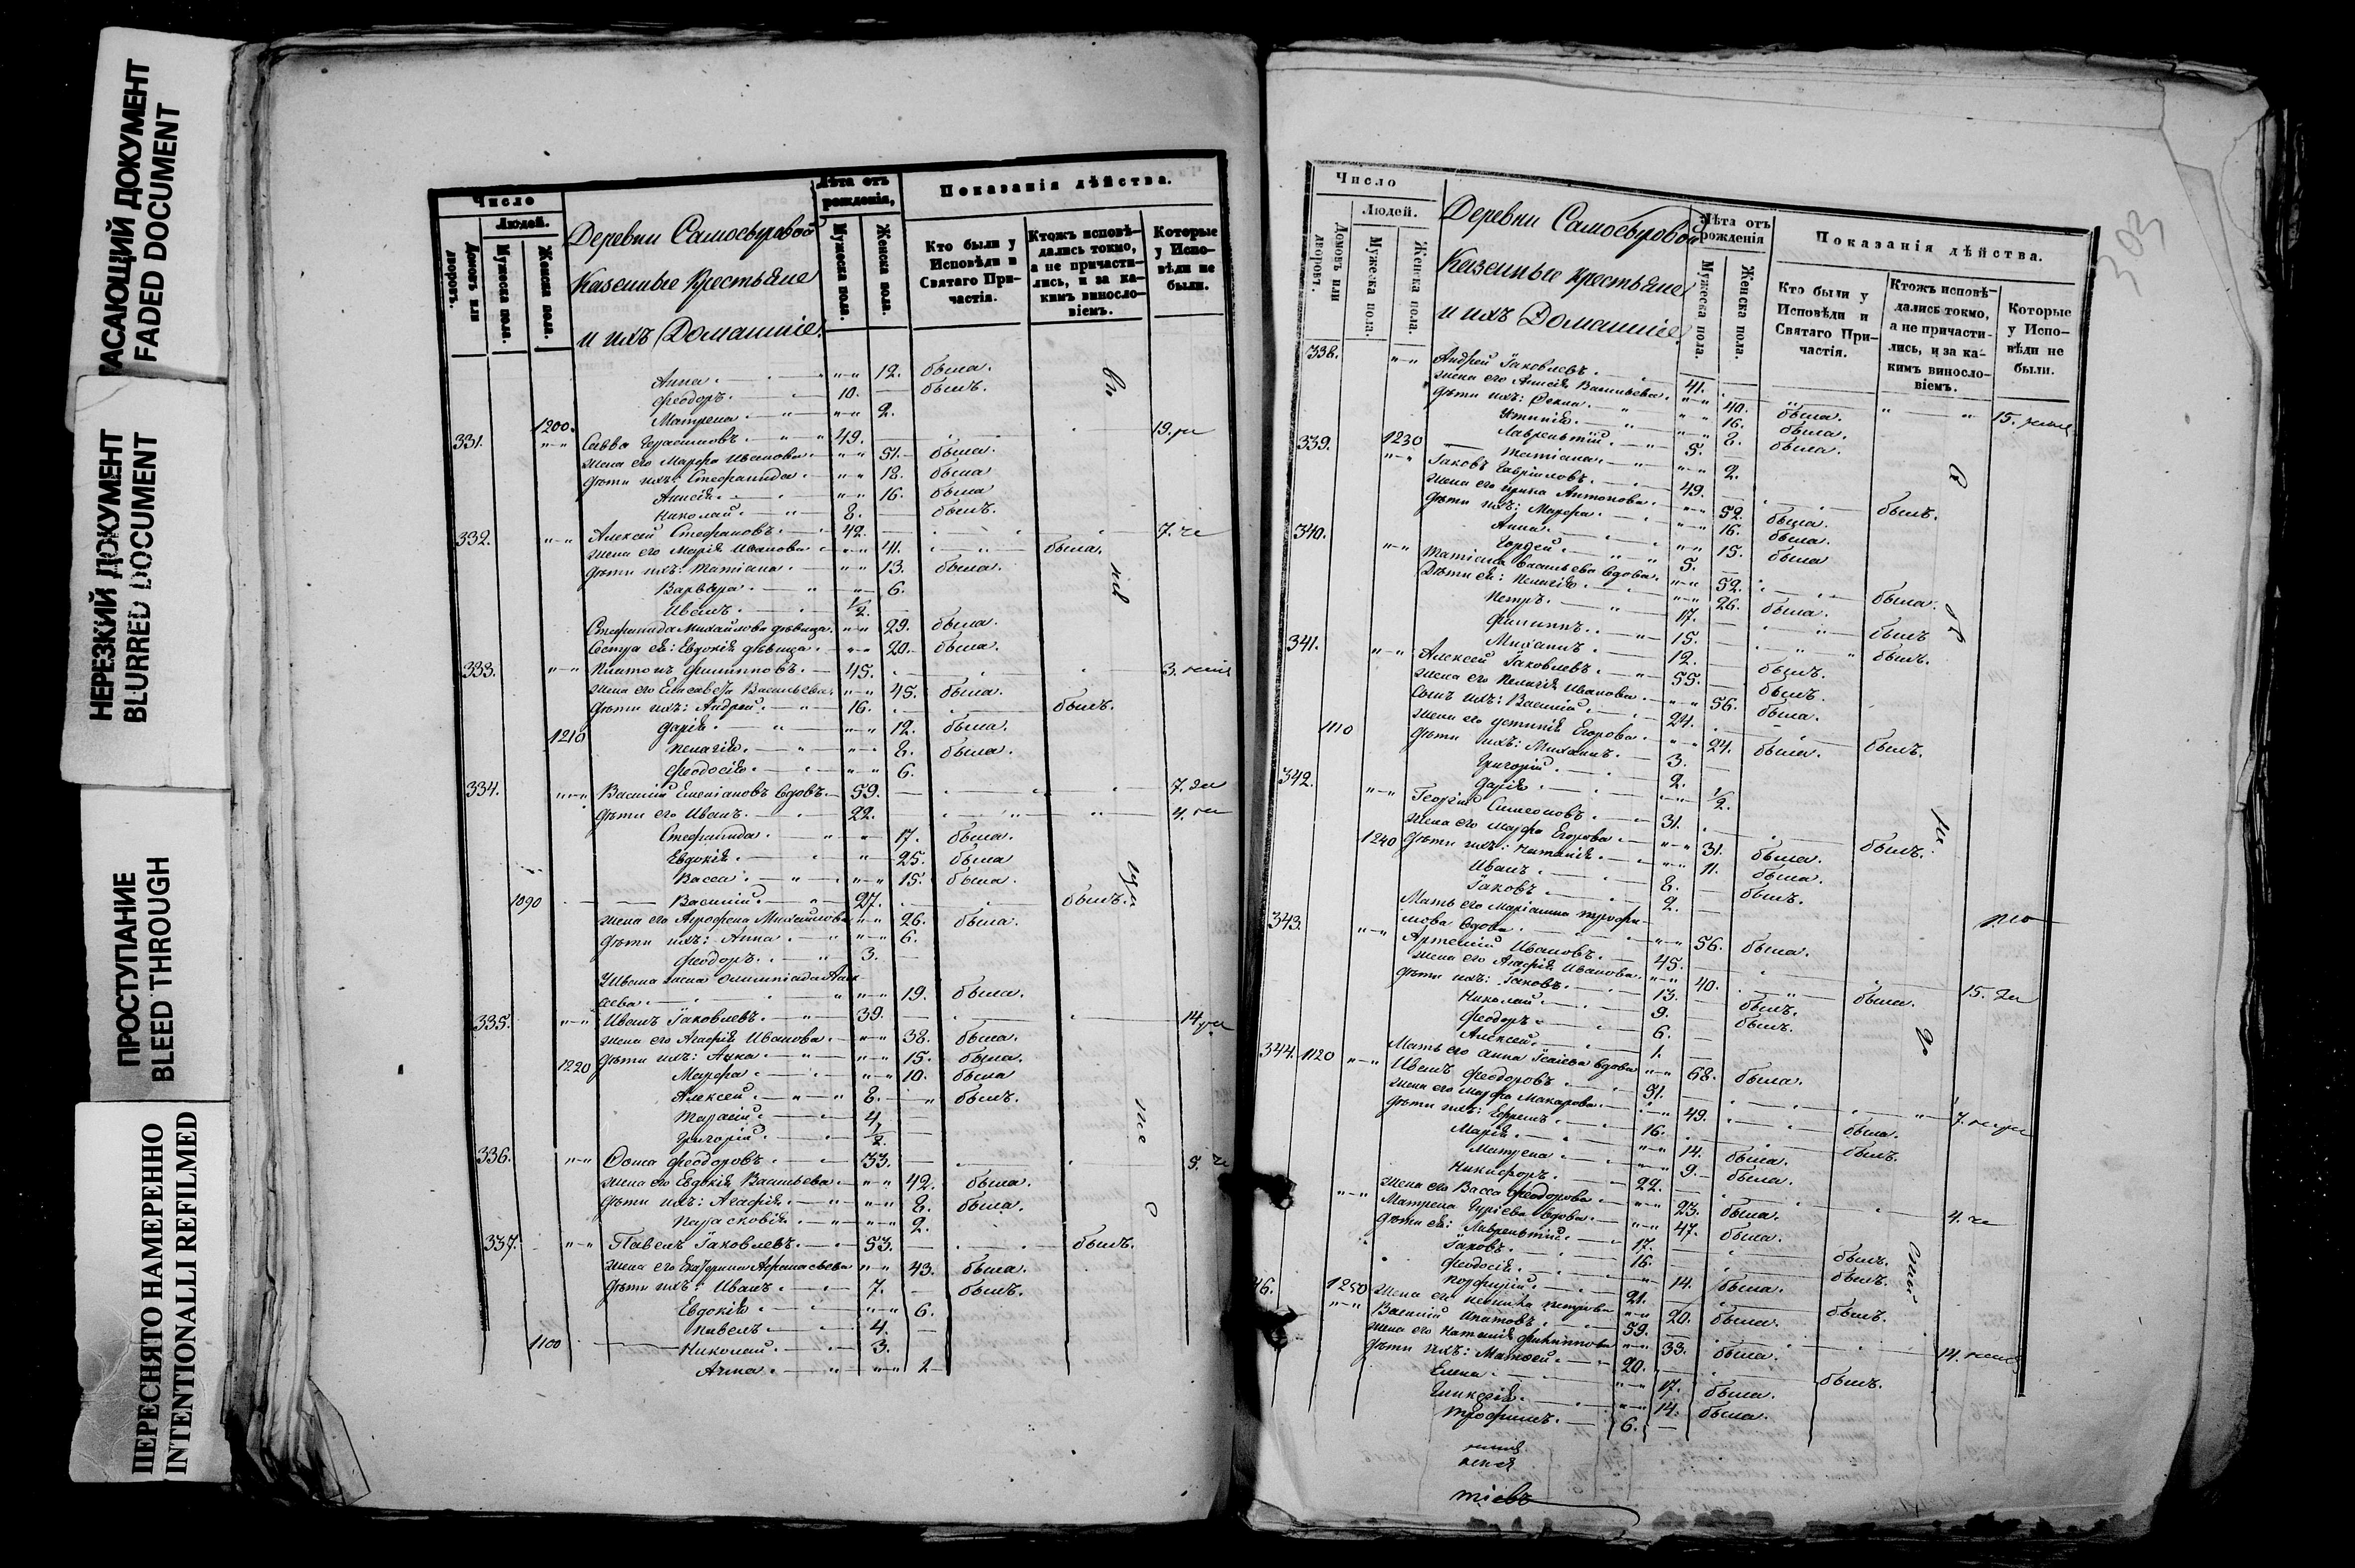 АСАЮЩИЙ ДОКУМЕНТ
FADED DOCUMENT
НЕРЕЗКИЙ ДОКУМЕНТ
BLURRED DOCUMENT
ПРОСТУПАНИЕ
BLEED THROUGH
ПЕРЕСНЯТО НАМЕРЕННО
INTENTIONALLI REFILMED
Число
Людей.
Домовъ или дворовъ.
Мужеска пола.
Женска пола.
Деревни Самосыровой
Казенные Крестьяне
и ихъ Домашніе.
Лѣта отъ рожденія,
Мужеска пола.
Женска пола.
Показанія дѣйства.
Кто были у Исповѣди и Святаго Причастія.
Ктожъ исповѣдались токмо, а не причастились, и за какимъ винословіемъ.
Которые у Исповѣди не были.
Анна. 12. была.
Феодоръ. 10. былъ.
1200. Матрена. 2.
331. Савва Герасимовъ. 49. 19.
жена его Марфа Иванова. 51. была.
дѣти ихъ: Стефанида. 18. была
Анисія. 16. была
Николай. 8. былъ.
332. Алексей Стефановъ. 42. 7.
жена его Марія Иванова. 41. была.
дѣти ихъ: Татіана. 13. была.
Варвара. 6.
Иванъ. 1/2.
Стефанида Михайлова дѣвица. 29. была.
Сестра ея: Евдокія дѣвица. 20. была.
333. Платонъ Филипповъ. 45. 3.
жена его Елисавета Васильева. 45. была.
дѣти ихъ: Андрей. 16. былъ.
1210 Дарія. 12. была.
Пелагія. 8. была.
Феодосія. 6.
334. Василій Емеліановъ вдовъ. 59. 7.
дѣти его Иванъ. 22. 4.
Стефанида. 17. была.
Евдокія. 25. была
Васса. 15. была.
1090 Василій. 27. былъ.
жена его Агрофена Михайлова 26. была.
дѣти ихъ: Анна. 6.
Феодоръ. 3.
Ивана жена Олимпіада
19. была.
335. Иванъ Іаковлевъ. 39. 14.
жена его Агафія Иванова. 38. была.
1220 дѣти ихъ: Анна. 15. была.
Марфа. 10. была
Алексей. 8. былъ.
Тарасій. 4.
Григорій. 1/2.
336. Фома Феодоровъ. 33.
жена его Евдокія Васильева. 42. была.
дѣти ихъ: Агафія. 8. была.
Парасковія. 2.
337. Павелъ Іаковлевъ. 53. былъ.
жена его Екатерина Афанасьева 43. была.
дѣти ихъ: Иванъ. 7. былъ.
Евдокія. 6.
Павелъ. 4.
1100 Николай. 3.
Анна.
303
Число
Людей.
Домовъ или дворовъ.
Мужеска пола.
Женска пола.
Деревни Самосыровой
Казенные Крестьяне
и ихъ Домашніе.
Лѣта отъ рожденія
Мужеска пола.
Женска пола.
Показанія дѣйства.
Кто были у Исповѣди и Святаго Причастія.
Ктожъ исповѣдались токмо, а не причастились, и за какимъ винословіемъ.
Которые у Исповѣди не были.
338. Андрей Іаковлевъ. 41. 15.
жена его Анисія Васильева. 40. была.
дѣти ихъ: Фекла. 16. была.
Устинія. 8. была.
Лаврентій. 5.
1230 Татіана. 2.
339. Іаковъ Гавриловъ. 49. былъ.
жена его Ирина Антонова. 52. была.
дѣти ихъ: Марфа. 16. была.
Анна. 15. была
Гордей. 5.
340. Татіана Васильева вдова. 52. была.
Дѣти ея: Пелагія. 26. была.
Петръ. 17. былъ
Филиппъ. 15. былъ.
Михаилъ. 12. былъ.
341. Алексей Іаковлевъ. 55. былъ.
жена его Пелагія Иванова. 56. была.
Сынъ ихъ: Василій. 24. былъ.
жена его Устинія Егорова. 24. была.
1110 дѣти ихъ: Михаилъ. 3.
Григорій. 2.
Дарія. 1/2.
342. Георгій Симеоновъ. 31. былъ.
жена его Марфа Егорова. 31. была.
1240 дѣти ихъ: Наталія. 11. была.
Иванъ. 8. былъ.
Іаковъ. 2.
Мать его Маріанна Трофимова вдова. 56. была.
343. Артемій Ивановъ. 45. 15.
жена его Агафія Иванова. 40. была.
дѣти ихъ: Іаковъ. 13. былъ.
Николай. 9. былъ.
Феодоръ. 6.
Алексей. 1.
Мать его Анна Ісаіева вдова 68. была.
344. 1120 Иванъ Феодоровъ. 51. 7.
жена его Марфа Макарова. 49. была.
дѣти ихъ: Ефремъ. 16. былъ.
Марія. 14. была.
Матрена. 9. была.
Никифоръ. 22. 4.
жена его Васса Феодорова. 23. была.
Матрена Гуріева вдова. 47. была.
дѣти ея: Лаврентій. 17. былъ.
Іаковъ. 16. былъ.
Феодосія. 14. была.
Порфирій. 21. былъ.
1250 жена его Петрова 20. была.
46. Василій Ипатовъ. 59. 14.
жена его Наталія Филиппова 33. была.
дѣти ихъ: Матвей. 20. былъ.
Елена. 17. была.
Гликерія. 14. была.
Трофимъ. 6.